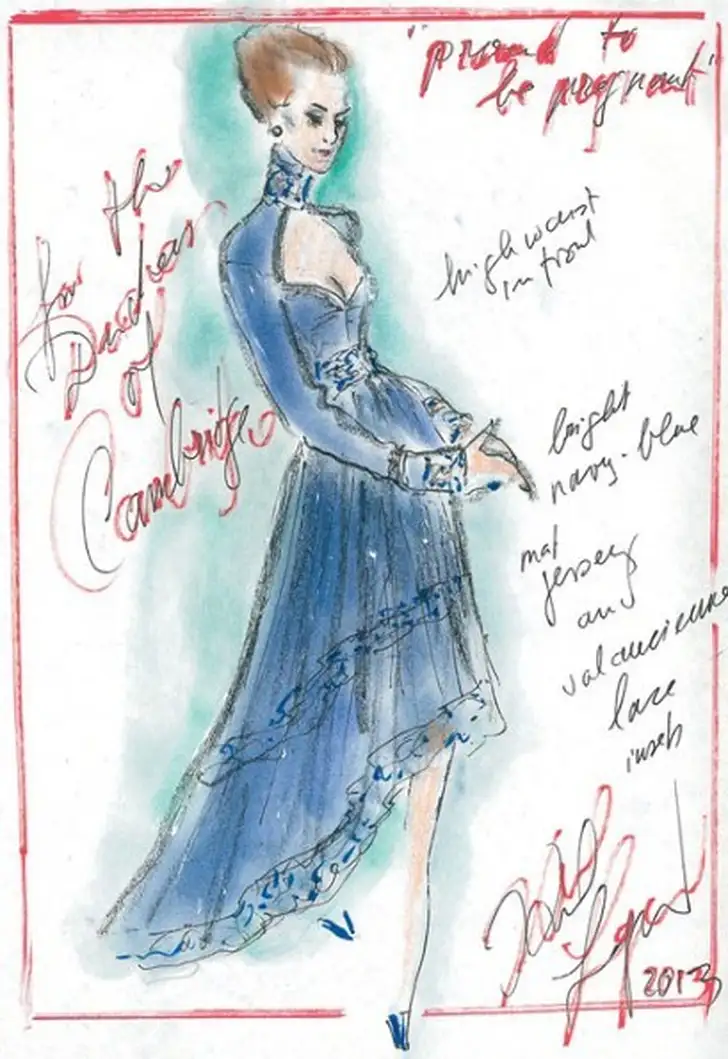 "proud to
be pregnant"
for the
Duchess
of
Cambridge
high waist
in front
bright
navy-blue
mat
jersey
and
valancienne
lace
insets
Karl
2013